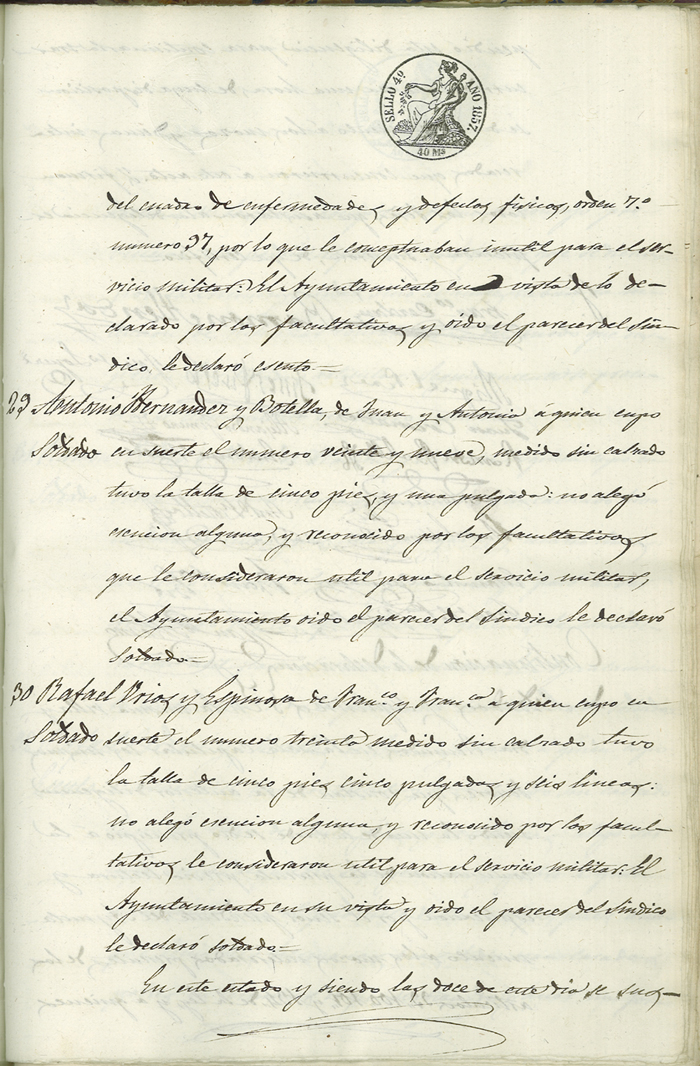 SELLO 4º AÑO 1857.
40 Ms
del cuadro de enfermedades y defectos fisicos, orden 7.º
numero 97, por lo que le conceptuaban inutil para el ser-
vicio militar: El Ayuntamiento en vista de lo de-
clarado por los facultativos y oido el parecer del Sin-
dico, le declaró esento.=
29 Antonio Hernandez y Botella, de Juan y Antonia á quien cupo
Soldado en suerte el numero veinte y nueve, medido sin calzado
tuvo la talla de cinco pies, y una pulgada: no alegó
esencion alguna, y reconocido por los facultativos
que le consideraron util para el servicio militar,
el Ayuntamiento oido el parecer del Sindico le declaró
soldado.=
30 Rafael Rios y Espinosa de Fran.co y Fran.ca á quien cupo en
Soldado suerte el numero treinta medido sin calzado tuvo
la talla de cinco pies cinco pulgadas y seis lineas:
no alegó esencion alguna, y reconocido por los facul-
tativos le consideraron util para el servicio militar: El
Ayuntamiento en su vista y oido el parecer del Sindico
le declaró soldado.=
En este estado y siendo las doce de este dia se sus-